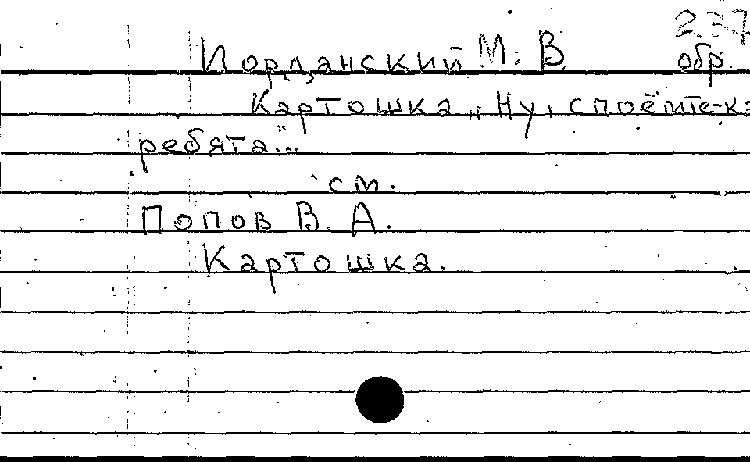 2.37
Иорданский М. В. обр.
Картошка „Ну, споёмте-ка
ребята..."
см.
Попов В. А.
Картошка.